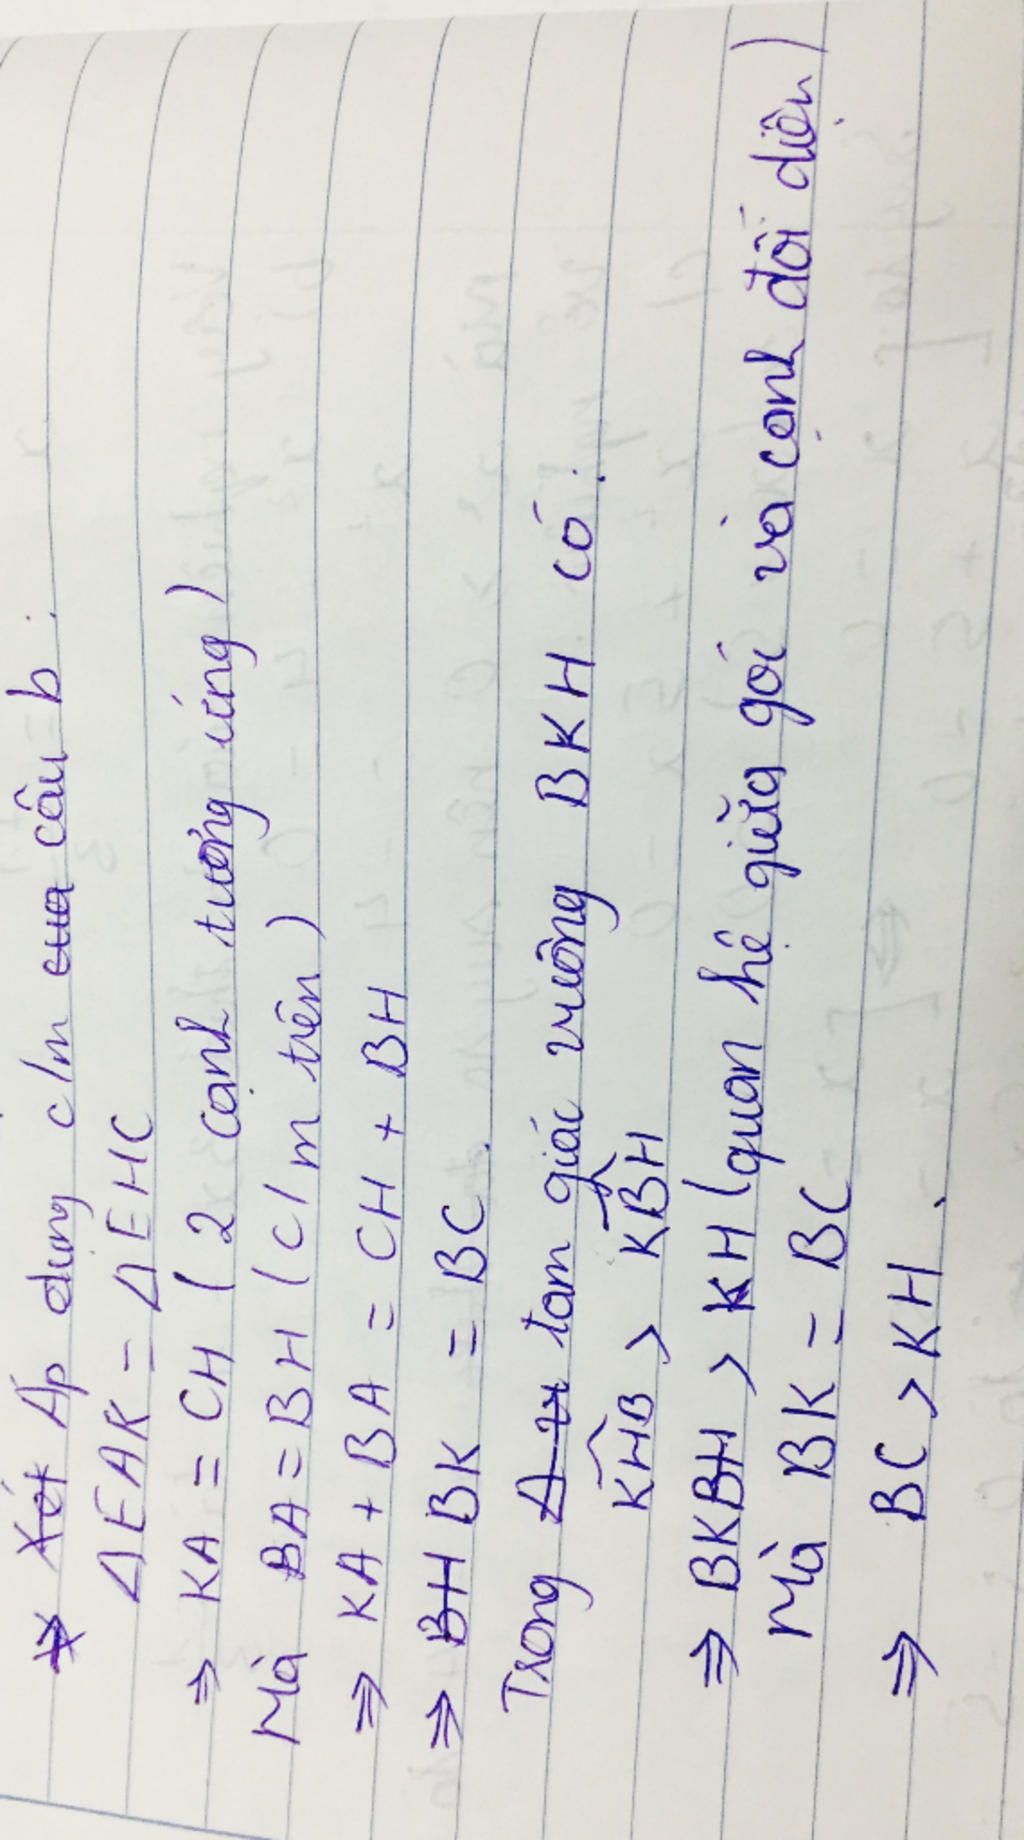 Xét Áp dụng c/m của câu b:
ΔEAK = ΔEHC
⇒ KA = CH (2 cạnh tương ứng)
Mà BA = BH (c/m trên)
⇒ KA + BA = CH + BH
⇒ BH BK = BC.
Trong Δ tam giác vuông BKH có:
KHB > KBH
⇒ BKBH > KH (quan hệ giữa góc và cạnh đối diện)
Mà BK = BC
⇒ BC > KH.